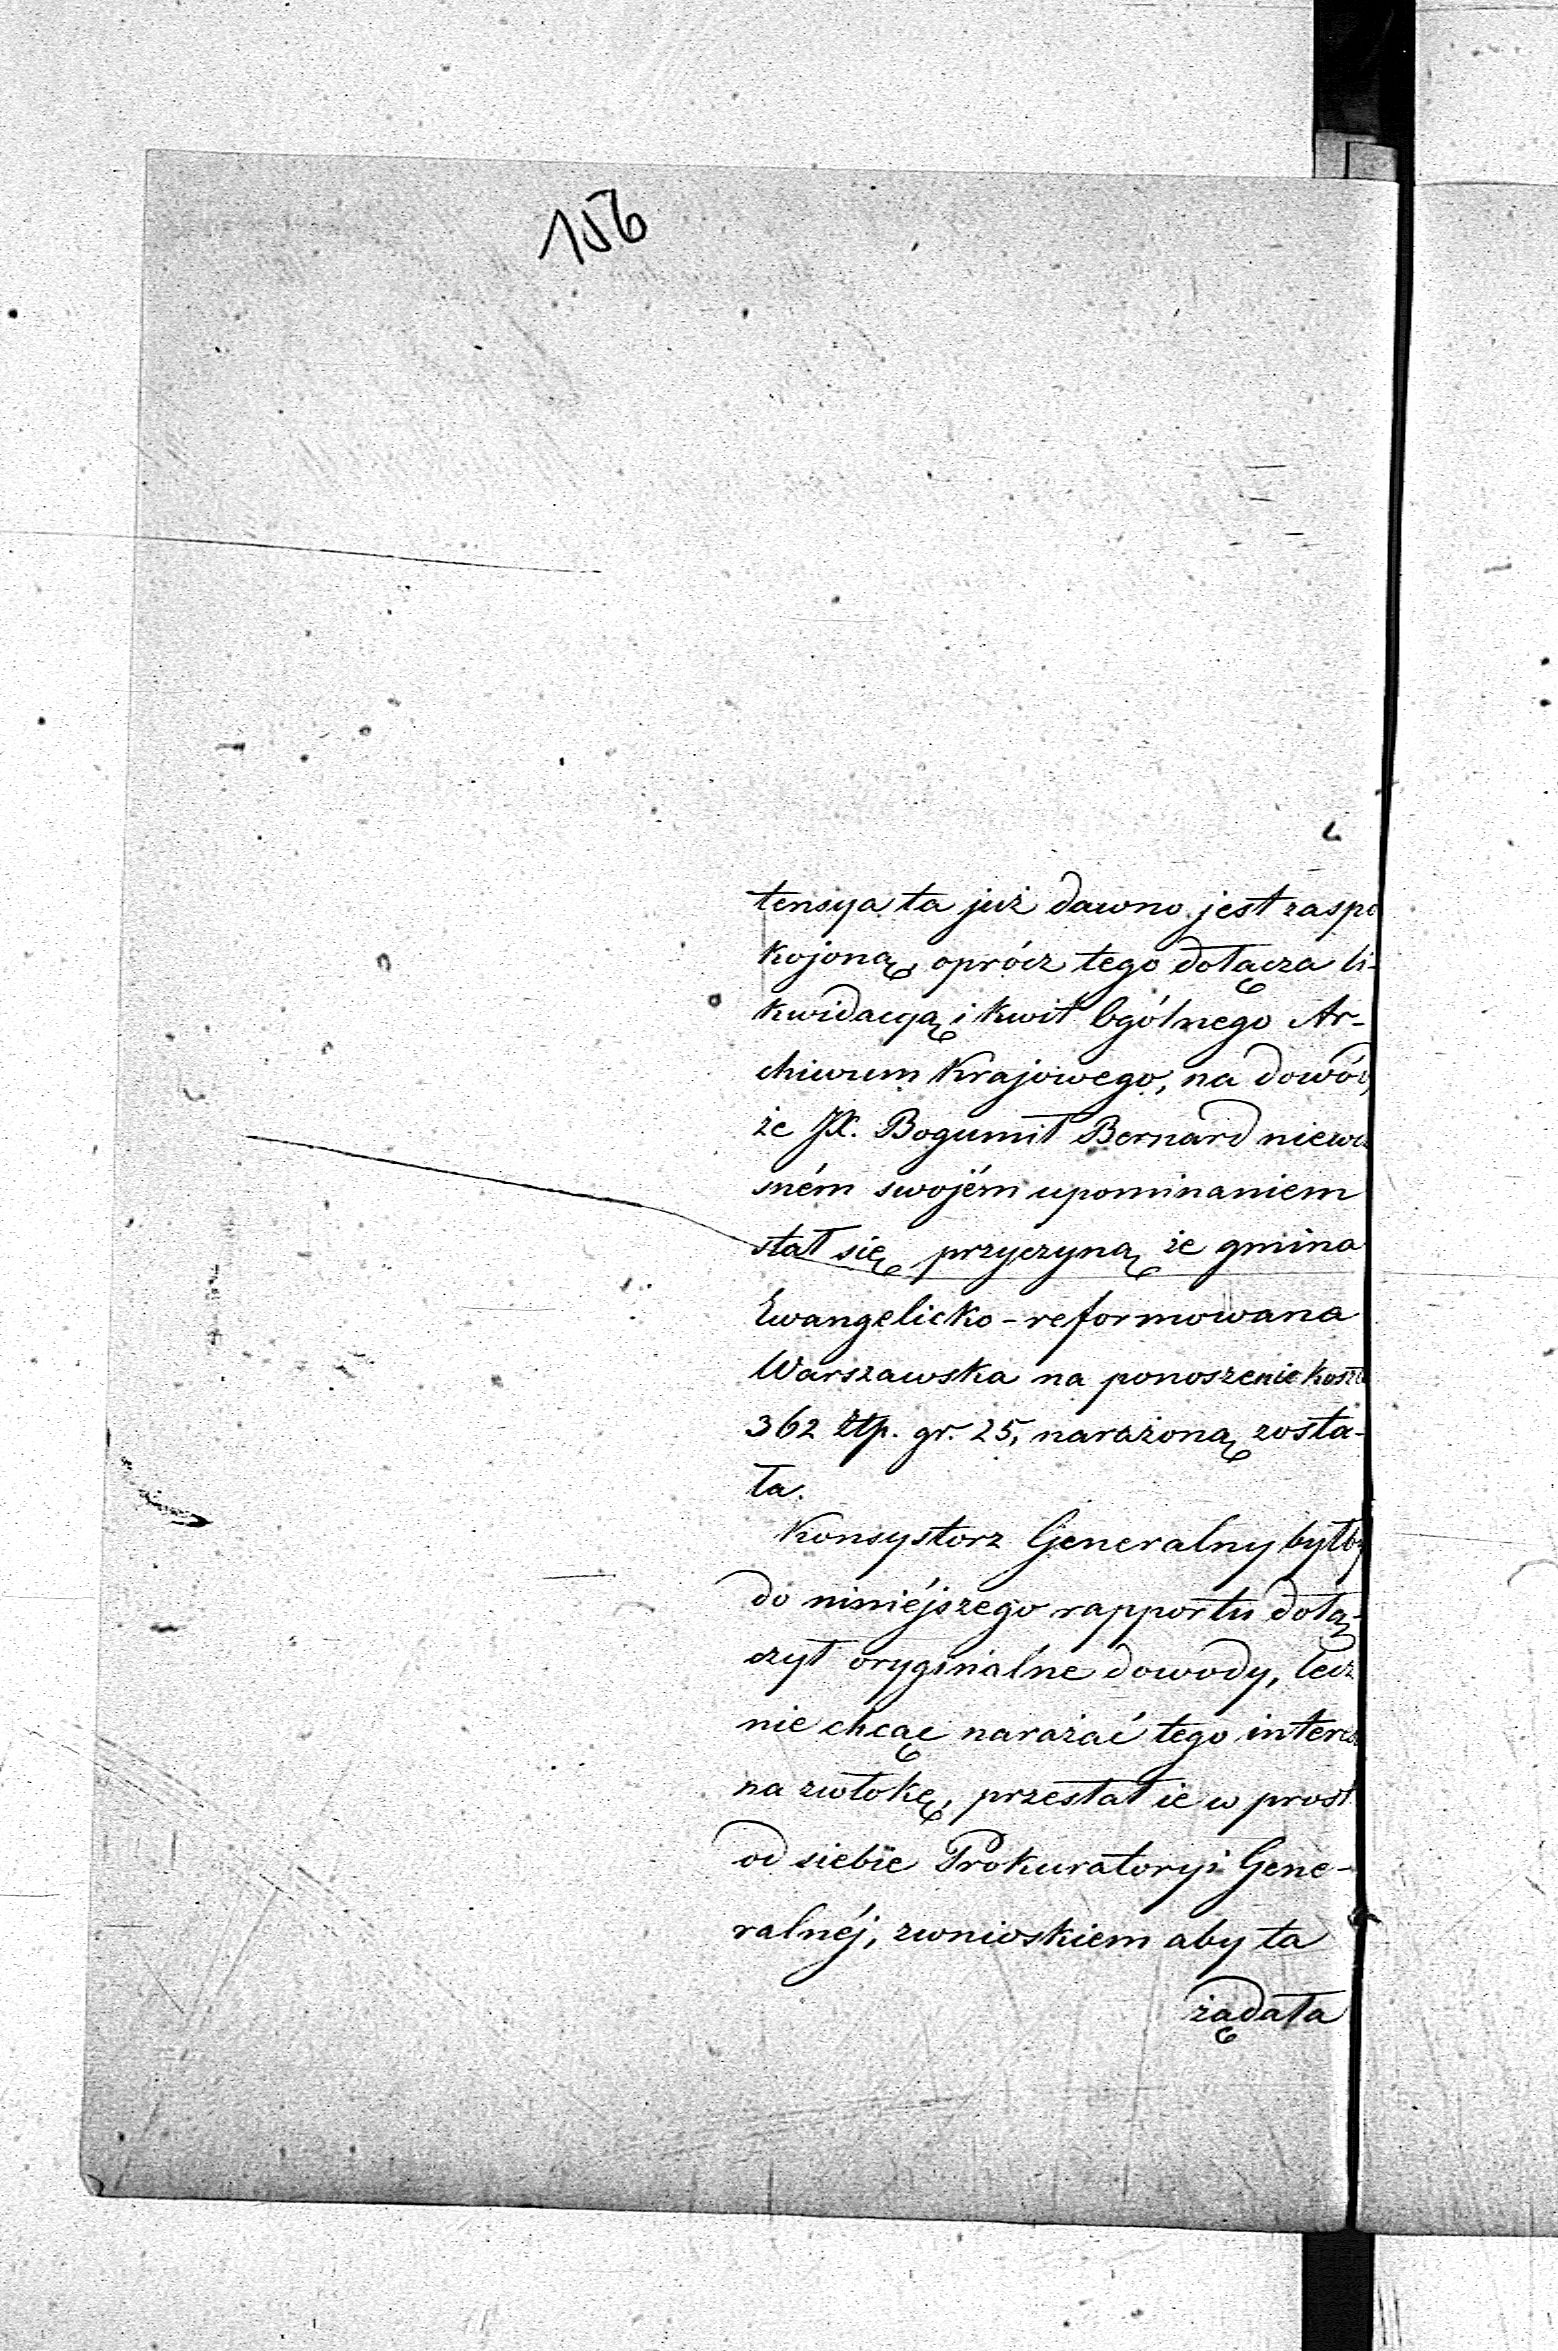 156
tensya ta już dawno jest zaspo
kojoną, oprócz tego dołącza li-
kwidacyą i kwit Ogólnego Ar-
chiwum Krajowego, na dowód,
że JX. Bogumił Bernard niewcze
sném swojém upominaniem
stał się przyczyną że gmina
Ewangelicko-reformowana
Warszawska na ponoszenie koszt
362 Złp. gr. 25, narażoną zosta-
ła.
Konsystorz Generalny byłby
do niniéjszego rapportu dołą-
czył oryginalne dowody, lecz
nie chcąc narażać tego interes
na zwłokę, przesłał ie w prost
od siebie Prokuratoryi Gene-
ralnéj, zwnioskiem aby ta
żądała